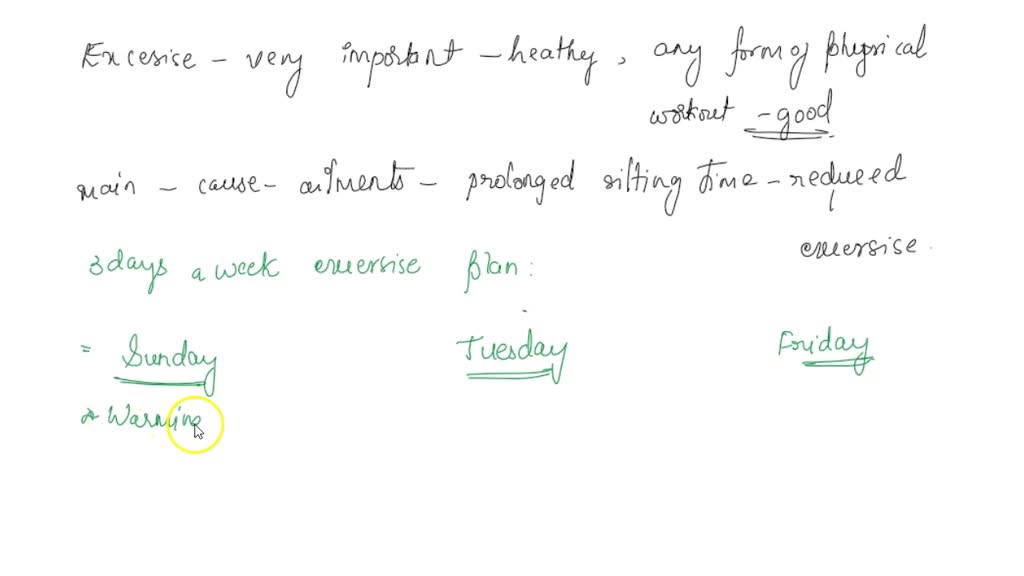 Excesise - very important - heathy, any form of physical
workout - good
main - cause - ailments - prolonged sitting time - reduced
exersise.
3 days a week exersise plan:
= Sunday Tuesday Friday
* Warning